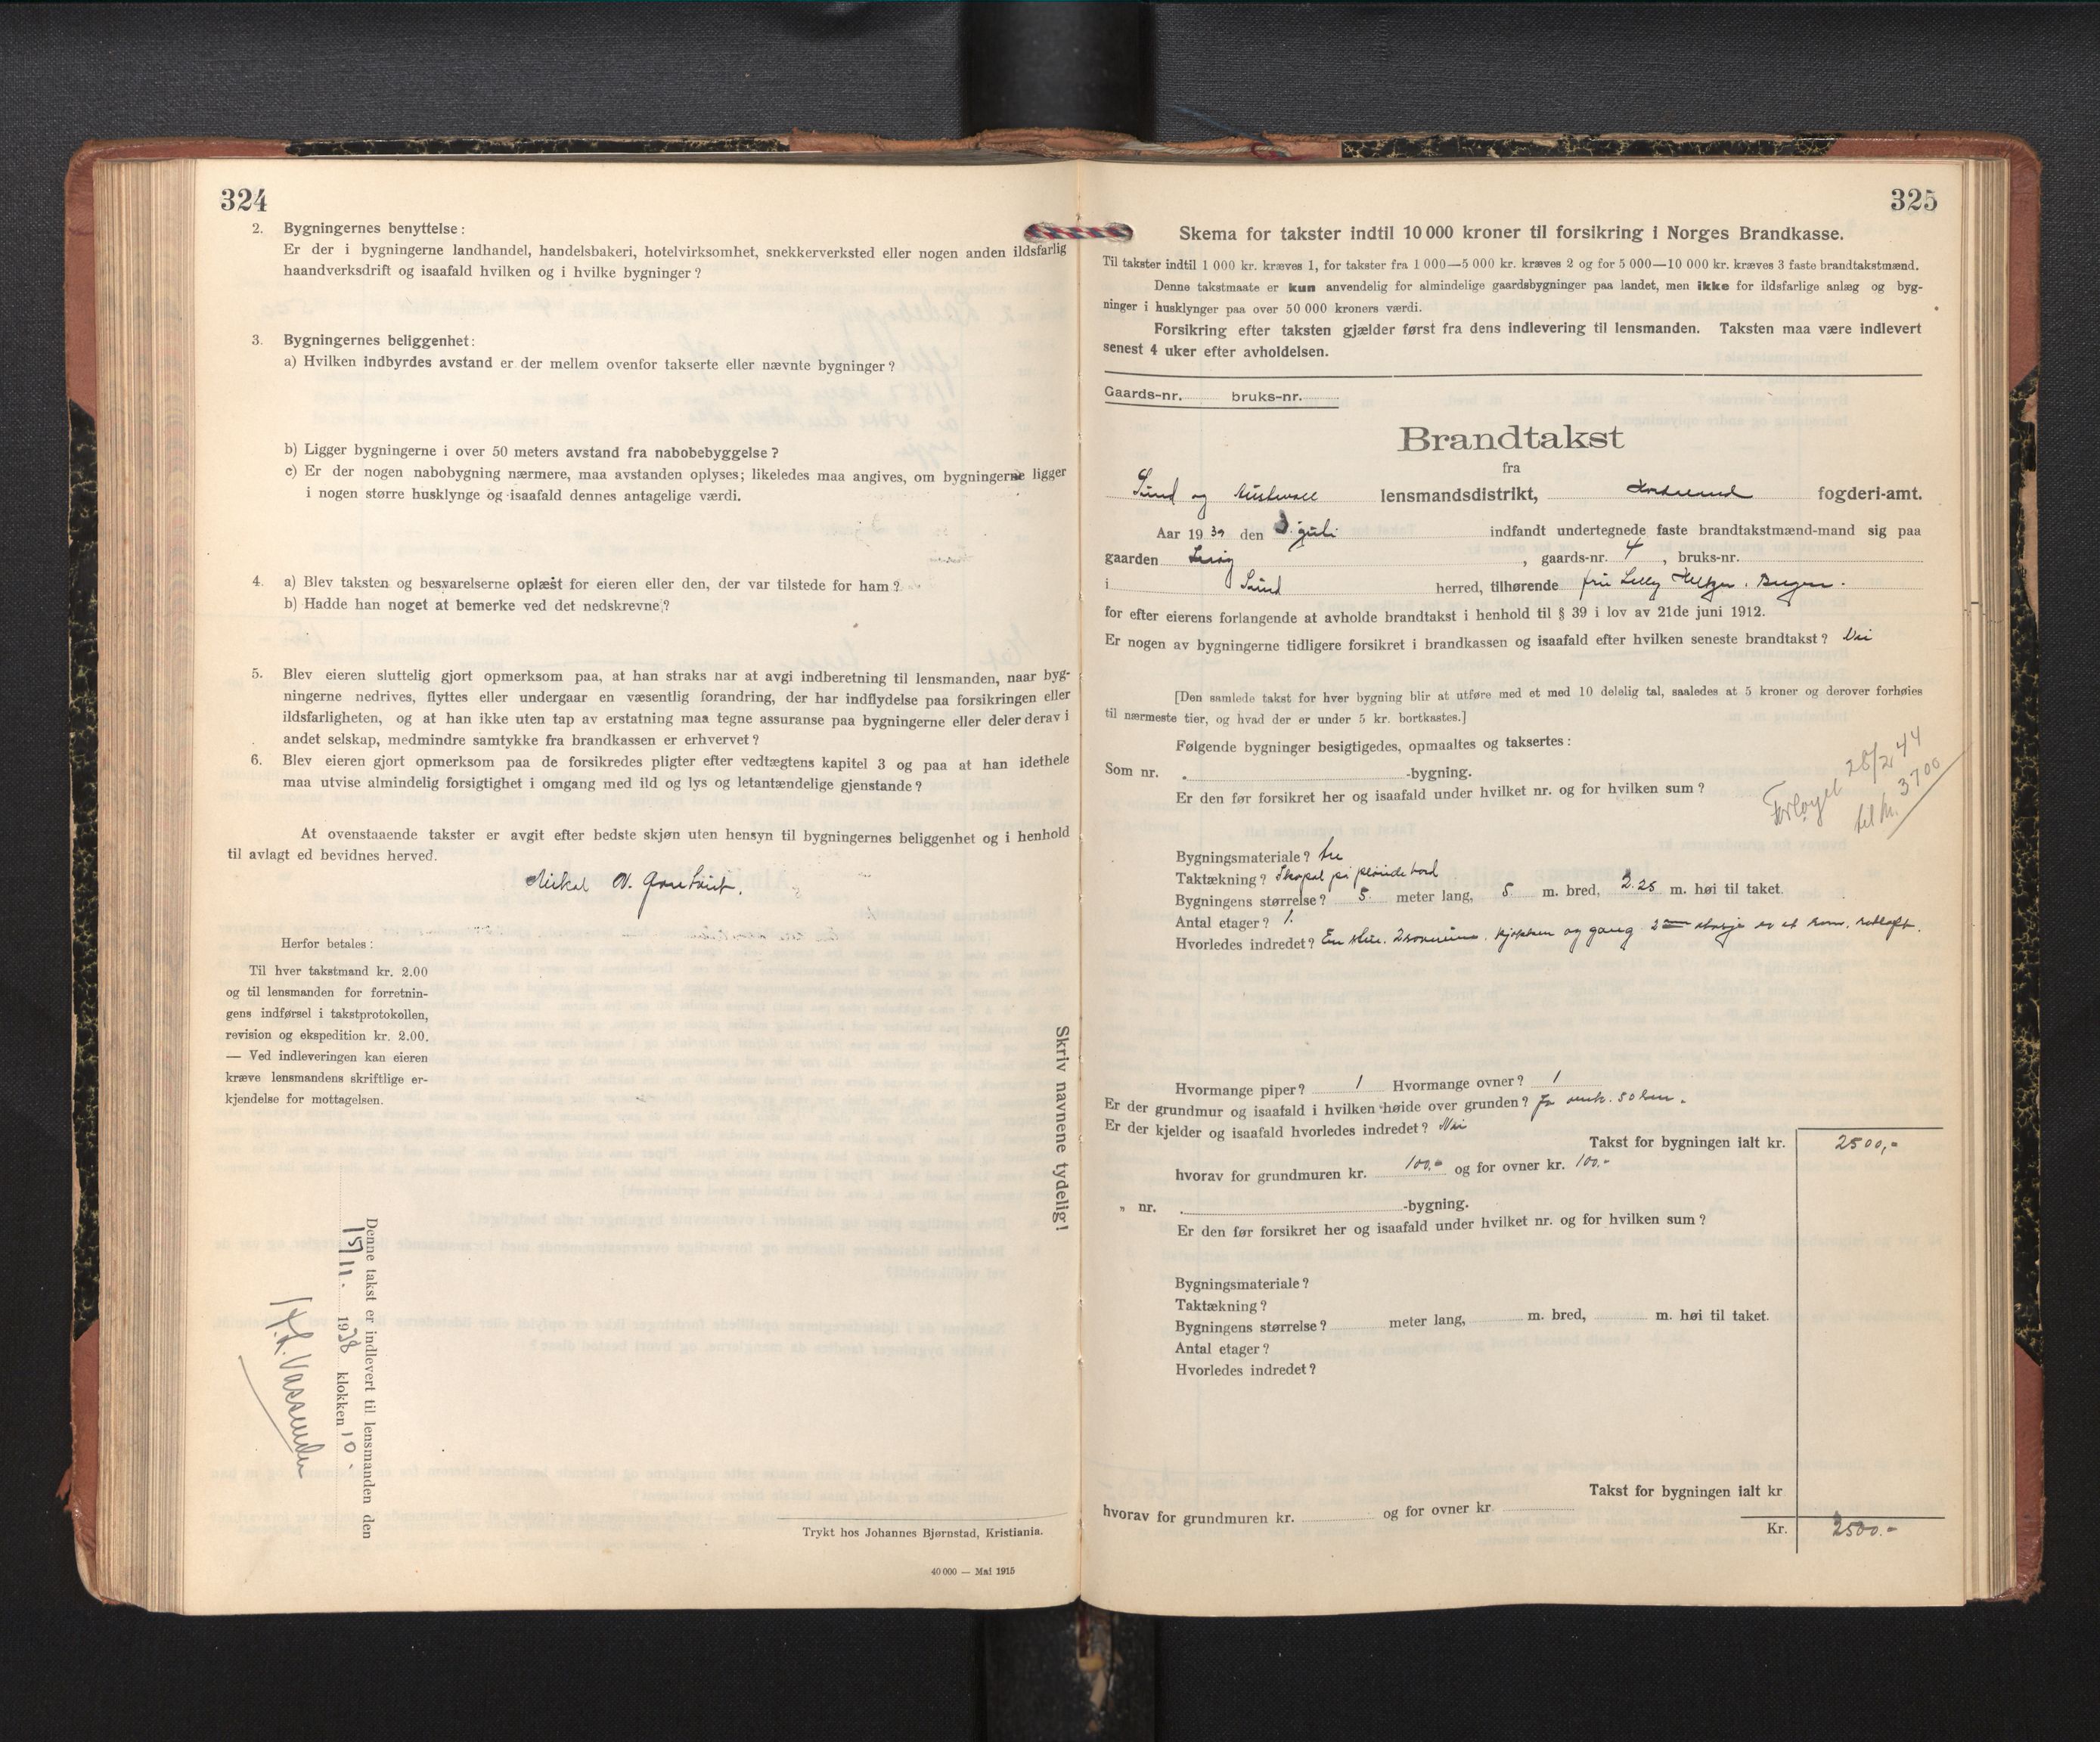 324
2. Bygningernes benyttelse:
Er der i bygningerne landhandel, handelsbakeri, hotelvirksomhet, snekkerverksted eller nogen anden ildsfarlig
haandverksdrift og isaafald hvilken og i hvilke bygninger?
3. Bygningernes beliggenhet:
a) Hvilken indbyrdes avstand er der mellem ovenfor takserte eller nævnte bygninger?
b) Ligger bygningerne i over 50 meters avstand fra nabobebyggelse?
c) Er der nogen nabobygning nærmere, maa avstanden oplyses; likeledes maa angives, om bygningerne ligger
i nogen større husklynge og isaafald dennes antagelige værdi.
4. a) Blev taksten og besvarelserne oplæst for eieren eller den, der var tilstede for ham?
b) Hadde han noget at bemerke ved det nedskrevne?
5. Blev eieren sluttelig gjort opmerksom paa, at han straks har at avgi indberetning til lensmanden, naar byg-
ningerne nedrives, flyttes eller undergaar en væsentlig forandring, der har indflydelse paa forsikringen eller
ildsfarligheten, og at han ikke uten tap av erstatning maa tegne assuranse paa bygningerne eller deler derav i
andet selskap, medmindre samtykke fra brandkassen er erhvervet?
6. Blev eieren gjort opmerksom paa de forsikredes pligter efter vedtægtens kapitel 3 og paa at han idethele
maa utvise almindelig forsigtighet i omgang med ild og lys og letantændelige gjenstande?
At ovenstaaende takster er avgit efter bedste skjøn uten hensyn til bygningernes beliggenhet og i henhold
til avlagt ed bevidnes herved.
Mikal N.
Herfor betales:
Til hver takstmand kr. 2.00
og til lensmanden for forretnin-
gens indførsel i takstprotokollen,
revision og ekspedition kr. 2.00.
— Ved indleveringen kan eieren
kræve lensmandens skriftlige er-
kjendelse for mottagelsen.
Skriv navnene tydelig!
Denne takst er indlevert til lensmanden den
15/11. 1938 klokken 10.
Trykt hos Johannes Bjørnstad, Kristiania.
40 000 — Mai 1915
325
Skema for takster indtil 10 000 kroner til forsikring i Norges Brandkasse.
Til takster indtil 1 000 kr. kræves 1, for takster fra 1 000—5 000 kr. kræves 2 og for 5 000—10 000 kr. kræves 3 faste brandtakstmænd.
Denne takstmaate er kun anvendelig for almindelige gaardsbygninger paa landet, men ikke for ildsfarlige anlæg og byg-
ninger i husklynger paa over 50 000 kroners værdi.
Forsikring efter taksten gjælder først fra dens indlevering til lensmanden. Taksten maa være indlevert
senest 4 uker efter avholdelsen.
Gaards-nr. bruks-nr.
Brandtakst
fra
Sund og Austevoll lensmandsdistrikt, Hordaland fogderi-amt.
Aar 1939 den 3. juli indfandt undertegnede faste brandtakstmænd-mand sig paa
gaarden Lerøy, gaards-nr. 4, bruks-nr.
i Sund herred, tilhørende fru Lilly Bergen.
for efter eierens forlangende at avholde brandtakst i henhold til § 39 i lov av 21de juni 1912.
Er nogen av bygningerne tidligere forsikret i brandkassen og isaafald efter hvilken seneste brandtakst? Nei
[Den samlede takst for hver bygning blir at utføre med et med 10 delelig tal, saaledes at 5 kroner og derover forhøies
til nærmeste tier, og hvad der er under 5 kr. bortkastes.]
Følgende bygninger besigtigedes, opmaaltes og taksertes:
28/2 44
til kr. 3700
Som nr. -bygning.
Er den før forsikret her og isaafald under hvilket nr. og for hvilken sum?
Bygningsmateriale? tre
Taktækning? på
Bygningens størrelse? 5 meter lang, 5 m. bred, 2.25 m. høi til taket.
Antal etager? 1.
Hvorledes indredet? En stue. 2 soverum. kjøkken og gang 2 etasje er et rom.
Hvormange piper? 1 Hvormange ovner? 1
Er der grundmur og isaafald i hvilken høide over grunden? Ja omk. 50 cm.
Er der kjelder og isaafald hvorledes indredet? Nei
Takst for bygningen ialt kr. 2500,-
hvorav for grundmuren kr. 100.- og for ovner kr. 100.-
„ nr. -bygning.
Er den før forsikret her og isaafald under hvilket nr. og for hvilken sum?
Bygningsmateriale?
Taktækning?
Bygningens størrelse? meter lang, m. bred, m. høi til taket.
Antal etager?
Hvorledes indredet?
Takst for bygningen ialt kr
hvorav for grundmuren kr. og for ovner kr
Kr. 2500.-